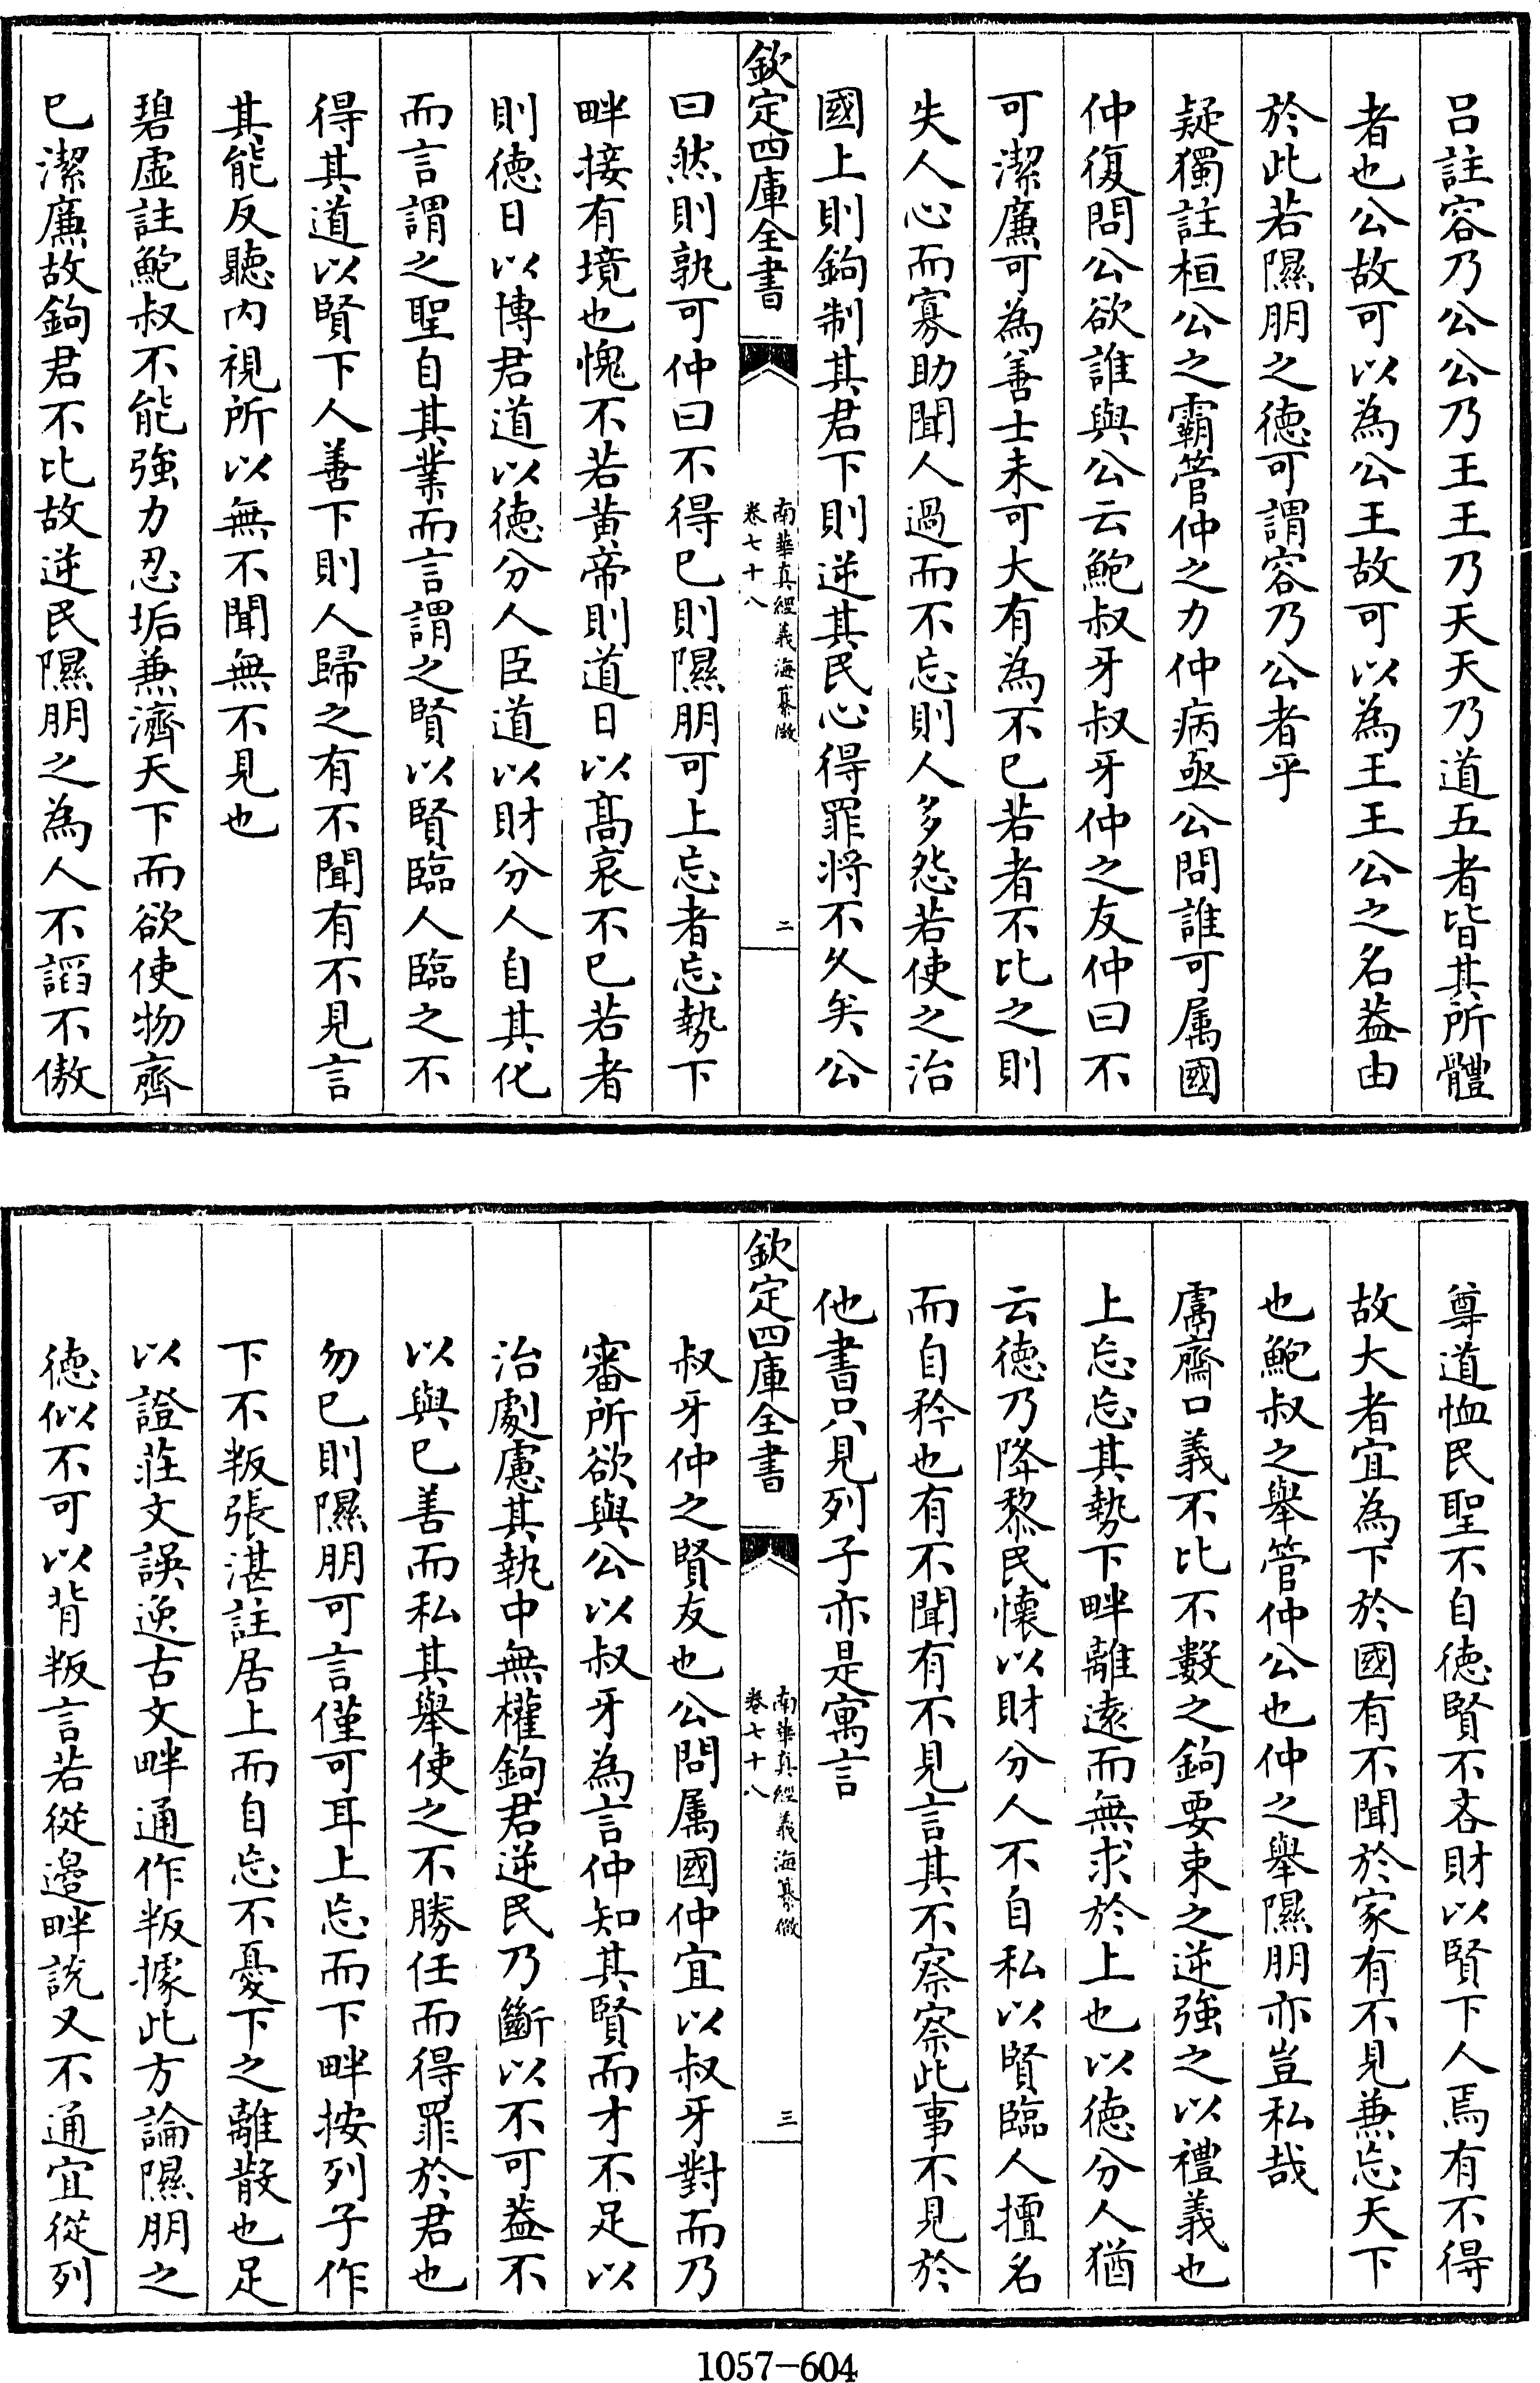 吕註容乃公公乃王王乃天天乃道五者皆其所體
者也公故可以為公王故可以為王王公之名葢由
於此若隰朋之徳可謂容乃公者乎
疑獨註桓公之霸管仲之力仲病亟公問誰可属國
仲復問公欲誰與公云鮑叔牙叔牙仲之友仲曰不
可潔廉可為善士未可大有為不已若者不比之則
失人心而寡助聞人過而不忘則人多怨若使之治
國上則鉤制其君下則逆其民心得罪将不久矣公
欽定四庫全書
南華真經義海纂微
卷七十八
二
曰然則孰可仲曰不得已則隰朋可上忘者忘勢下
畔接有境也愧不若黄帝則道日以髙哀不已若者
則徳日以博君道以徳分人臣道以財分人自其化
而言謂之聖自其業而言謂之賢以賢臨人臨之不
得其道以賢下人善下則人歸之有不聞有不見言
其能反聽内視所以無不聞無不見也
碧虚註鮑叔不能強力忍垢兼濟天下而欲使物齊
已潔廉故鉤君不比故逆民隰朋之為人不謟不傲
尊道恤民聖不自徳賢不吝財以賢下人焉有不得
故大者宜為下於國有不聞於家有不見兼忘天下
也鮑叔之舉管仲公也仲之舉隰朋亦豈私哉
鬳齋口義不比不數之鉤要束之逆強之以禮義也
上忘忘其勢下畔離逺而無求於上也以徳分人猶
云徳乃降黎民懐以財分人不自私以賢臨人擅名
而自矜也有不聞有不見言其不察察此事不見於
他書只見列子亦是寓言
欽定四庫全書
南華真經義海纂微
卷七十八
三
叔牙仲之賢友也公問属國仲宜以叔牙對而乃
審所欲與公以叔牙為言仲知其賢而才不足以
治劇慮其執中無權鉤君逆民乃斷以不可葢不
以與已善而私其舉使之不勝任而得罪於君也
勿已則隰朋可言僅可耳上忘而下畔按列子作
下不叛張湛註居上而自忘不憂下之離散也足
以證莊文誤逸古文畔通作叛據此方論隰朋之
徳似不可以背叛言若從邉畔說又不通宜從列
1057-604